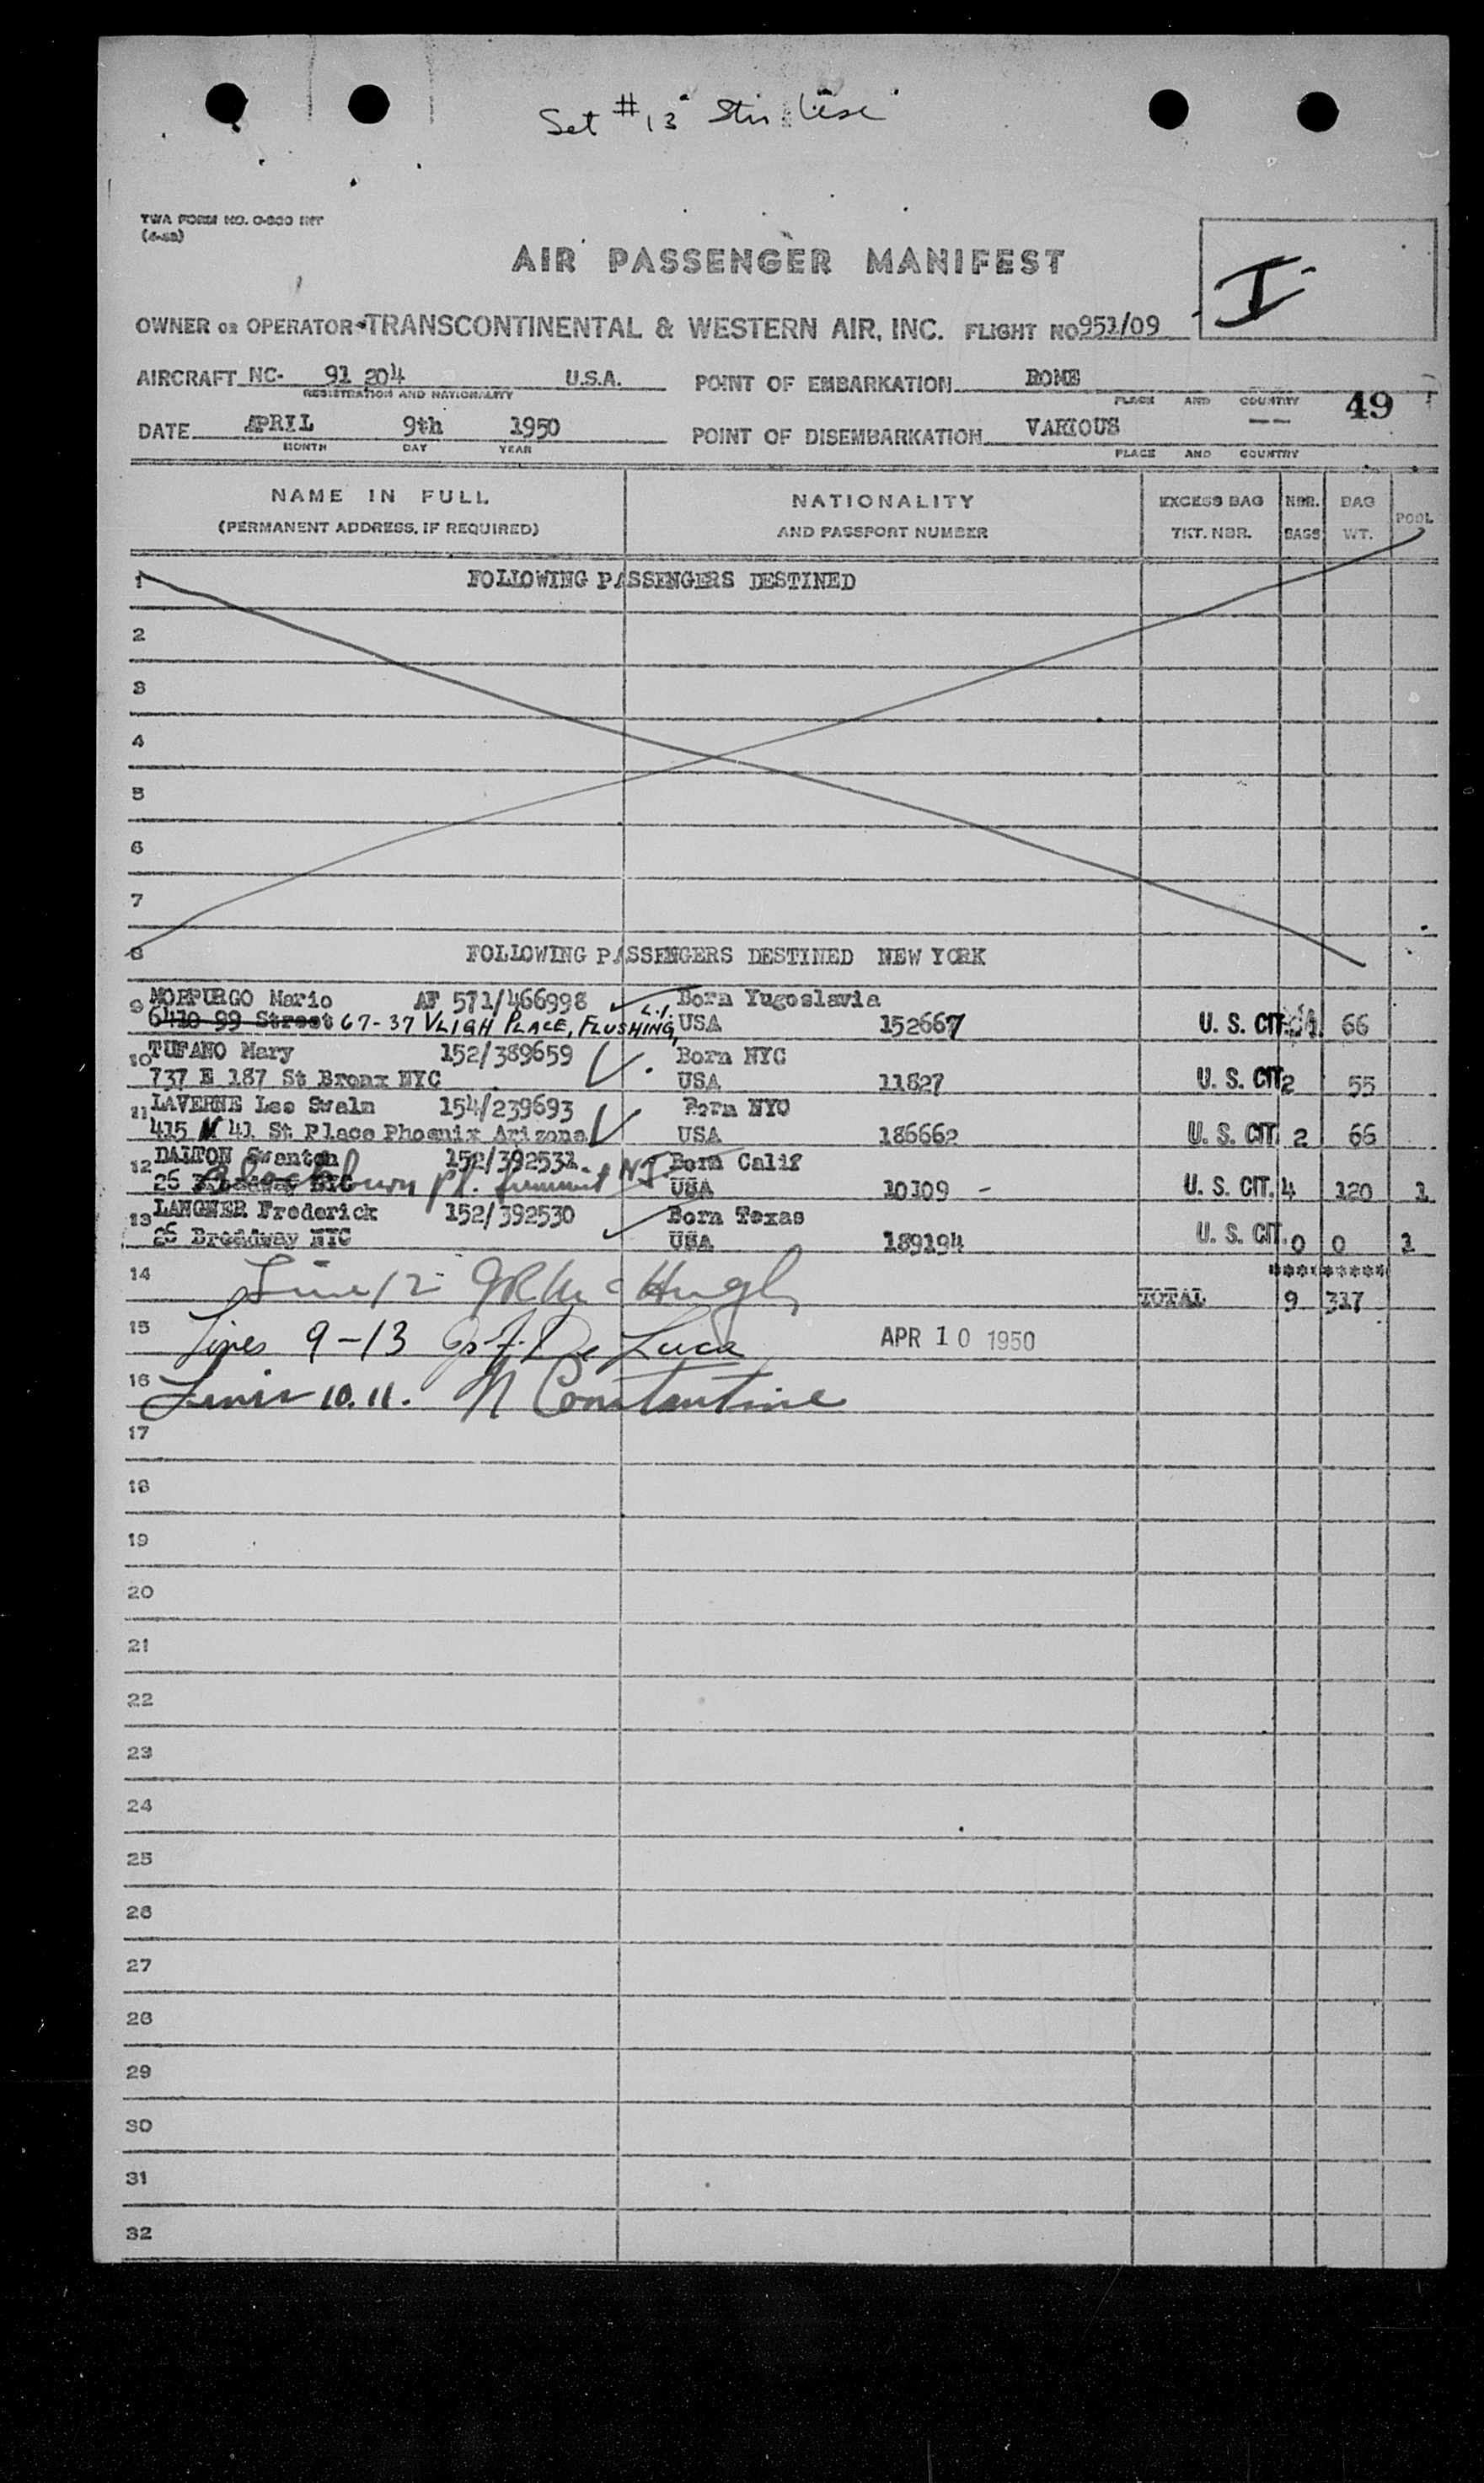 Set #13
TWA FORM NO. O-800 INT
AIR PASSENGER MANIFEST
I
OWNER OR OPERATOR-TRANSCONTINENTAL & WESTERN AIR, INC. FLIGHT NO 951/09
AIRCRAFT NC- 91 204 U.S.A. POINT OF EMBARKATION ROME
REGISTRATION AND NATIONALITY PLACE AND COUNTRY
49
DATE APRIL 9th 1950 POINT OF DISEMBARKATION VARIOUS --
MONTH DAY YEAR PLACE AND COUNTRY
NAME IN FULL NATIONALITY EXCESS BAG NBR. BAG POOL
(PERMANENT ADDRESS, IF REQUIRED) AND PASSPORT NUMBER TKT. NBR. BAGS WT.
1 FOLLOWING PASSENGERS DESTINED
2
3
4
5
6
7
8 FOLLOWING PASSENGERS DESTINED NEW YORK
9 MORPURGO Mario AF 571/466998 Born Yugoslavia
6410 99 Street 67-37 VLIGH PLACE, FLUSHING, L.I. USA 152667 U. S. CIT. 66
10 TUFANO Mary 152/389659 Born NYC
737 E 187 St Bronx NYC USA 11827 U. S. CIT 2 55
11 LAVERNE Lee Swaln 154/239693 Born NYC
415 N 41 St Place Phoenix Arizona USA 186662 U. S. CIT. 2 66
12 DALTON Swanton 152/392531 Born Calif
26 Broadway NYC Blackburn Pl. Summit NJ USA 10109 - U. S. CIT. 4 120 1
13 LANGNER Frederick 152/392530 Born Texas
26 Broadway NYC USA 189194 U. S. CIT. 0 0 1
**********
14 Line 12 JR McHugh TOTAL 9 317
15 Lines 9-13 De Luca APR 10 1950
16 Lines 10.11. N Constantine
17
18
19
20
21
22
23
24
25
26
27
28
29
30
31
32